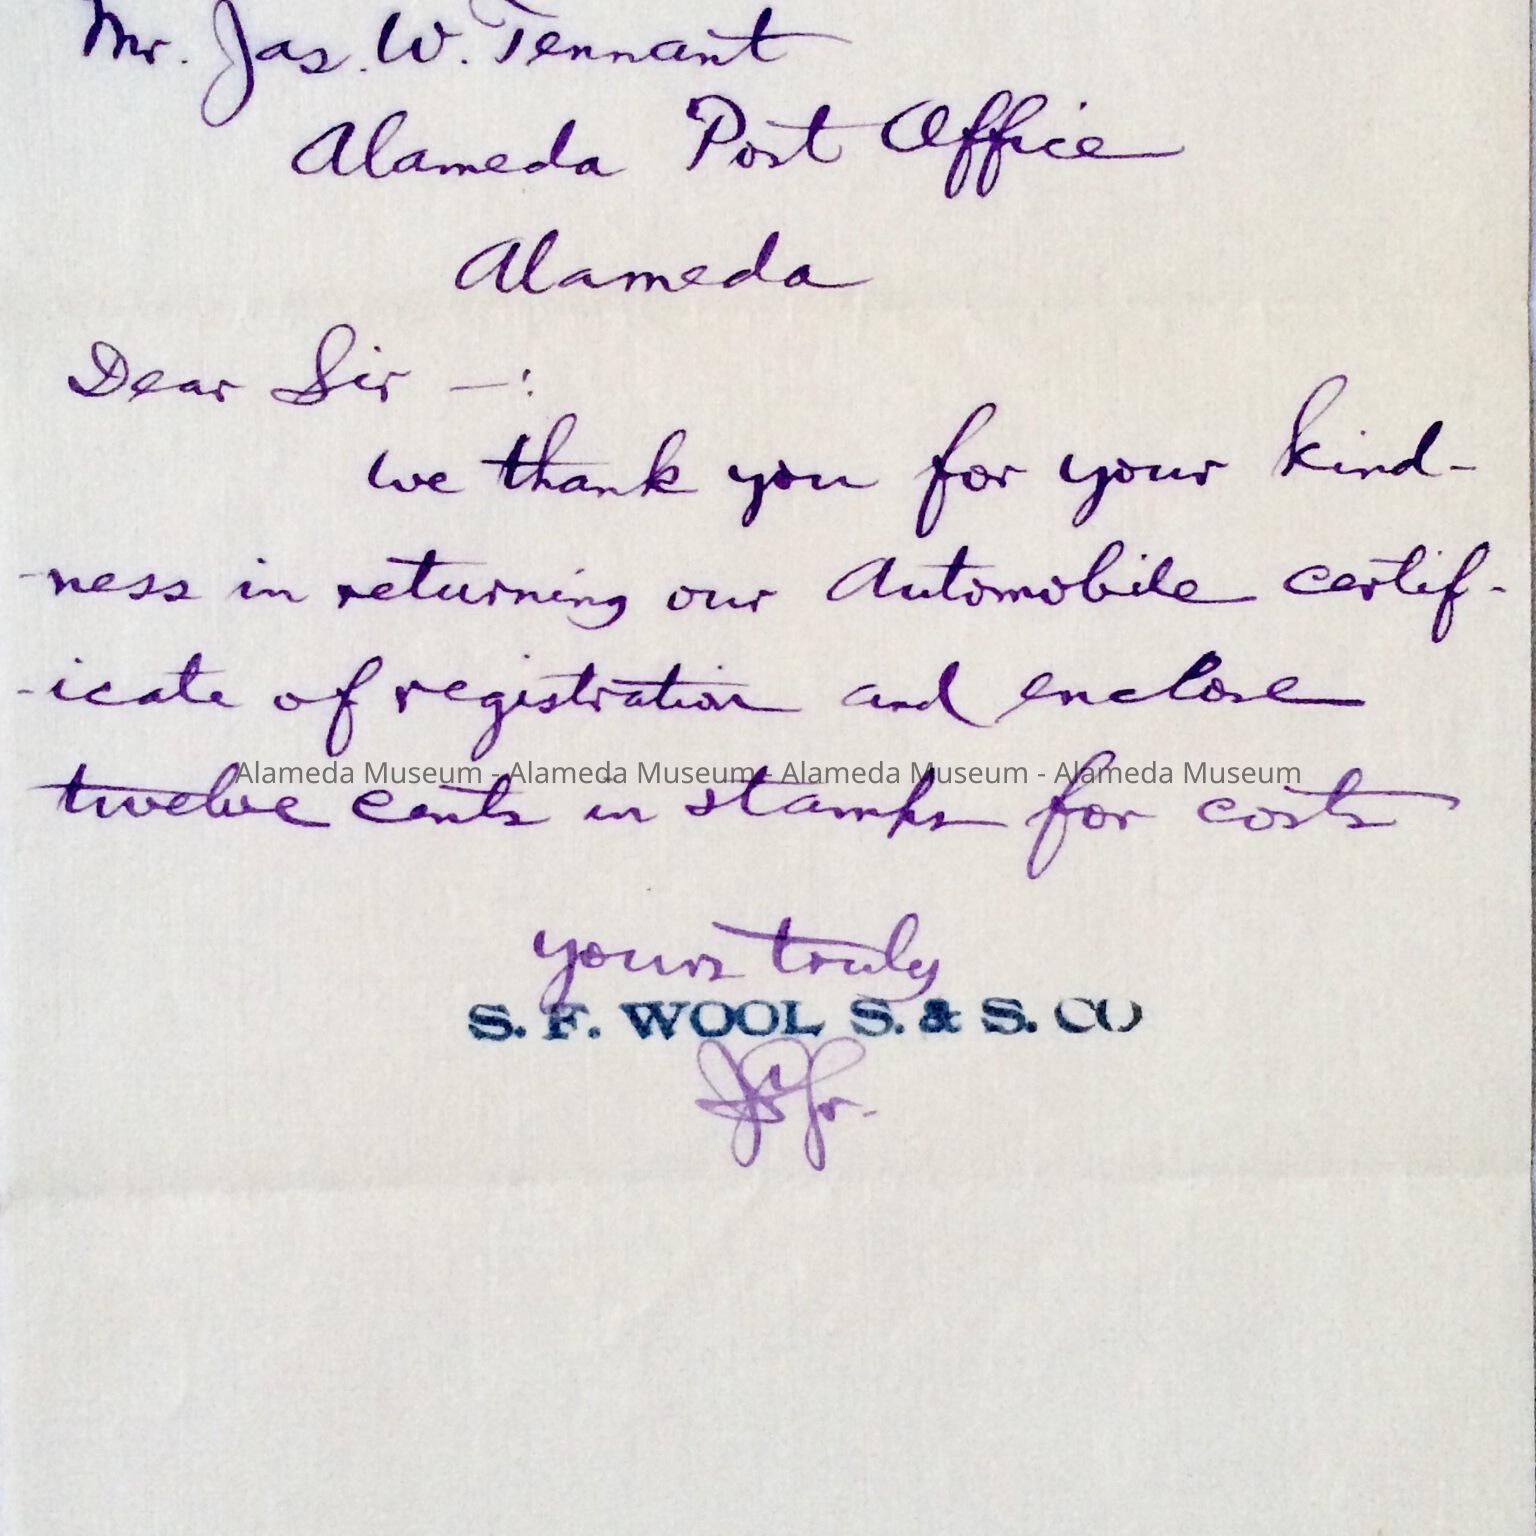 Mr. Jas. W. Tennant
Alameda Post Office
Alameda
Dear Sir —:
we thank you for your kind-
-ness in returning our Automobile certif-
-icate of registration and enclose
Alameda Museum - Alameda Museum - Alameda Museum - Alameda Museum
twelve cents in stamps for costs
yours truly
S. F. WOOL S. & S. CO